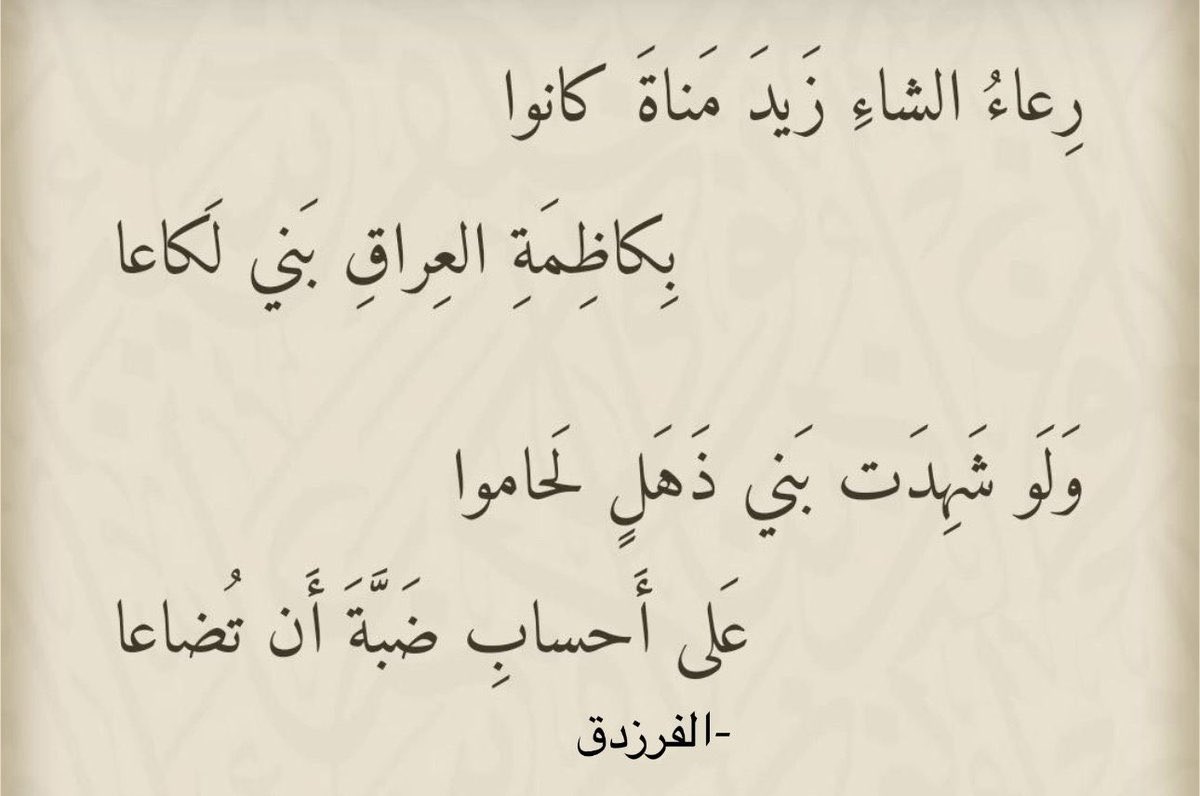 رِعاءُ الشاءِ زَيدَ مَناةَ كانوا
بِكاظِمَةِ العِراقِ بَني لَكاعا
وَلَو شَهِدَت بَني ذَهَلٍ لَحاموا
عَلى أَحسابِ ضَبَّةَ أَن تُضاعا
-الفرزدق